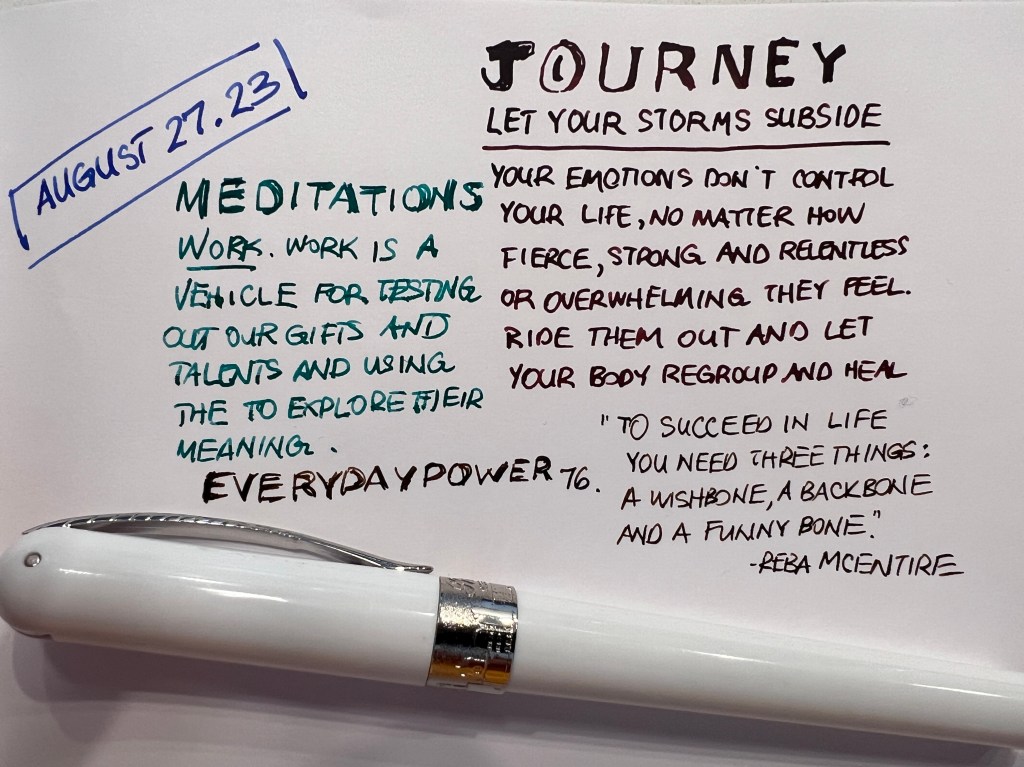 AUGUST 27.23
JOURNEY
LET YOUR STORMS SUBSIDE
YOUR EMOTIONS DON'T CONTROL
YOUR LIFE, NO MATTER HOW
FIERCE, STRONG AND RELENTLESS
OR OVERWHELMING THEY FEEL.
RIDE THEM OUT AND LET
YOUR BODY REGROUP AND HEAL
MEDITATIONS
WORK. WORK IS A
VEHICLE FOR TESTING
OUT OUR GIFTS AND
TALENTS AND USING
THE TO EXPLORE THEIR
MEANING.
EVERYDAYPOWER 76.
"TO SUCCEED IN LIFE
YOU NEED THREE THINGS:
A WISHBONE, A BACKBONE
AND A FUNNY BONE."
-REBA MCENTIRE